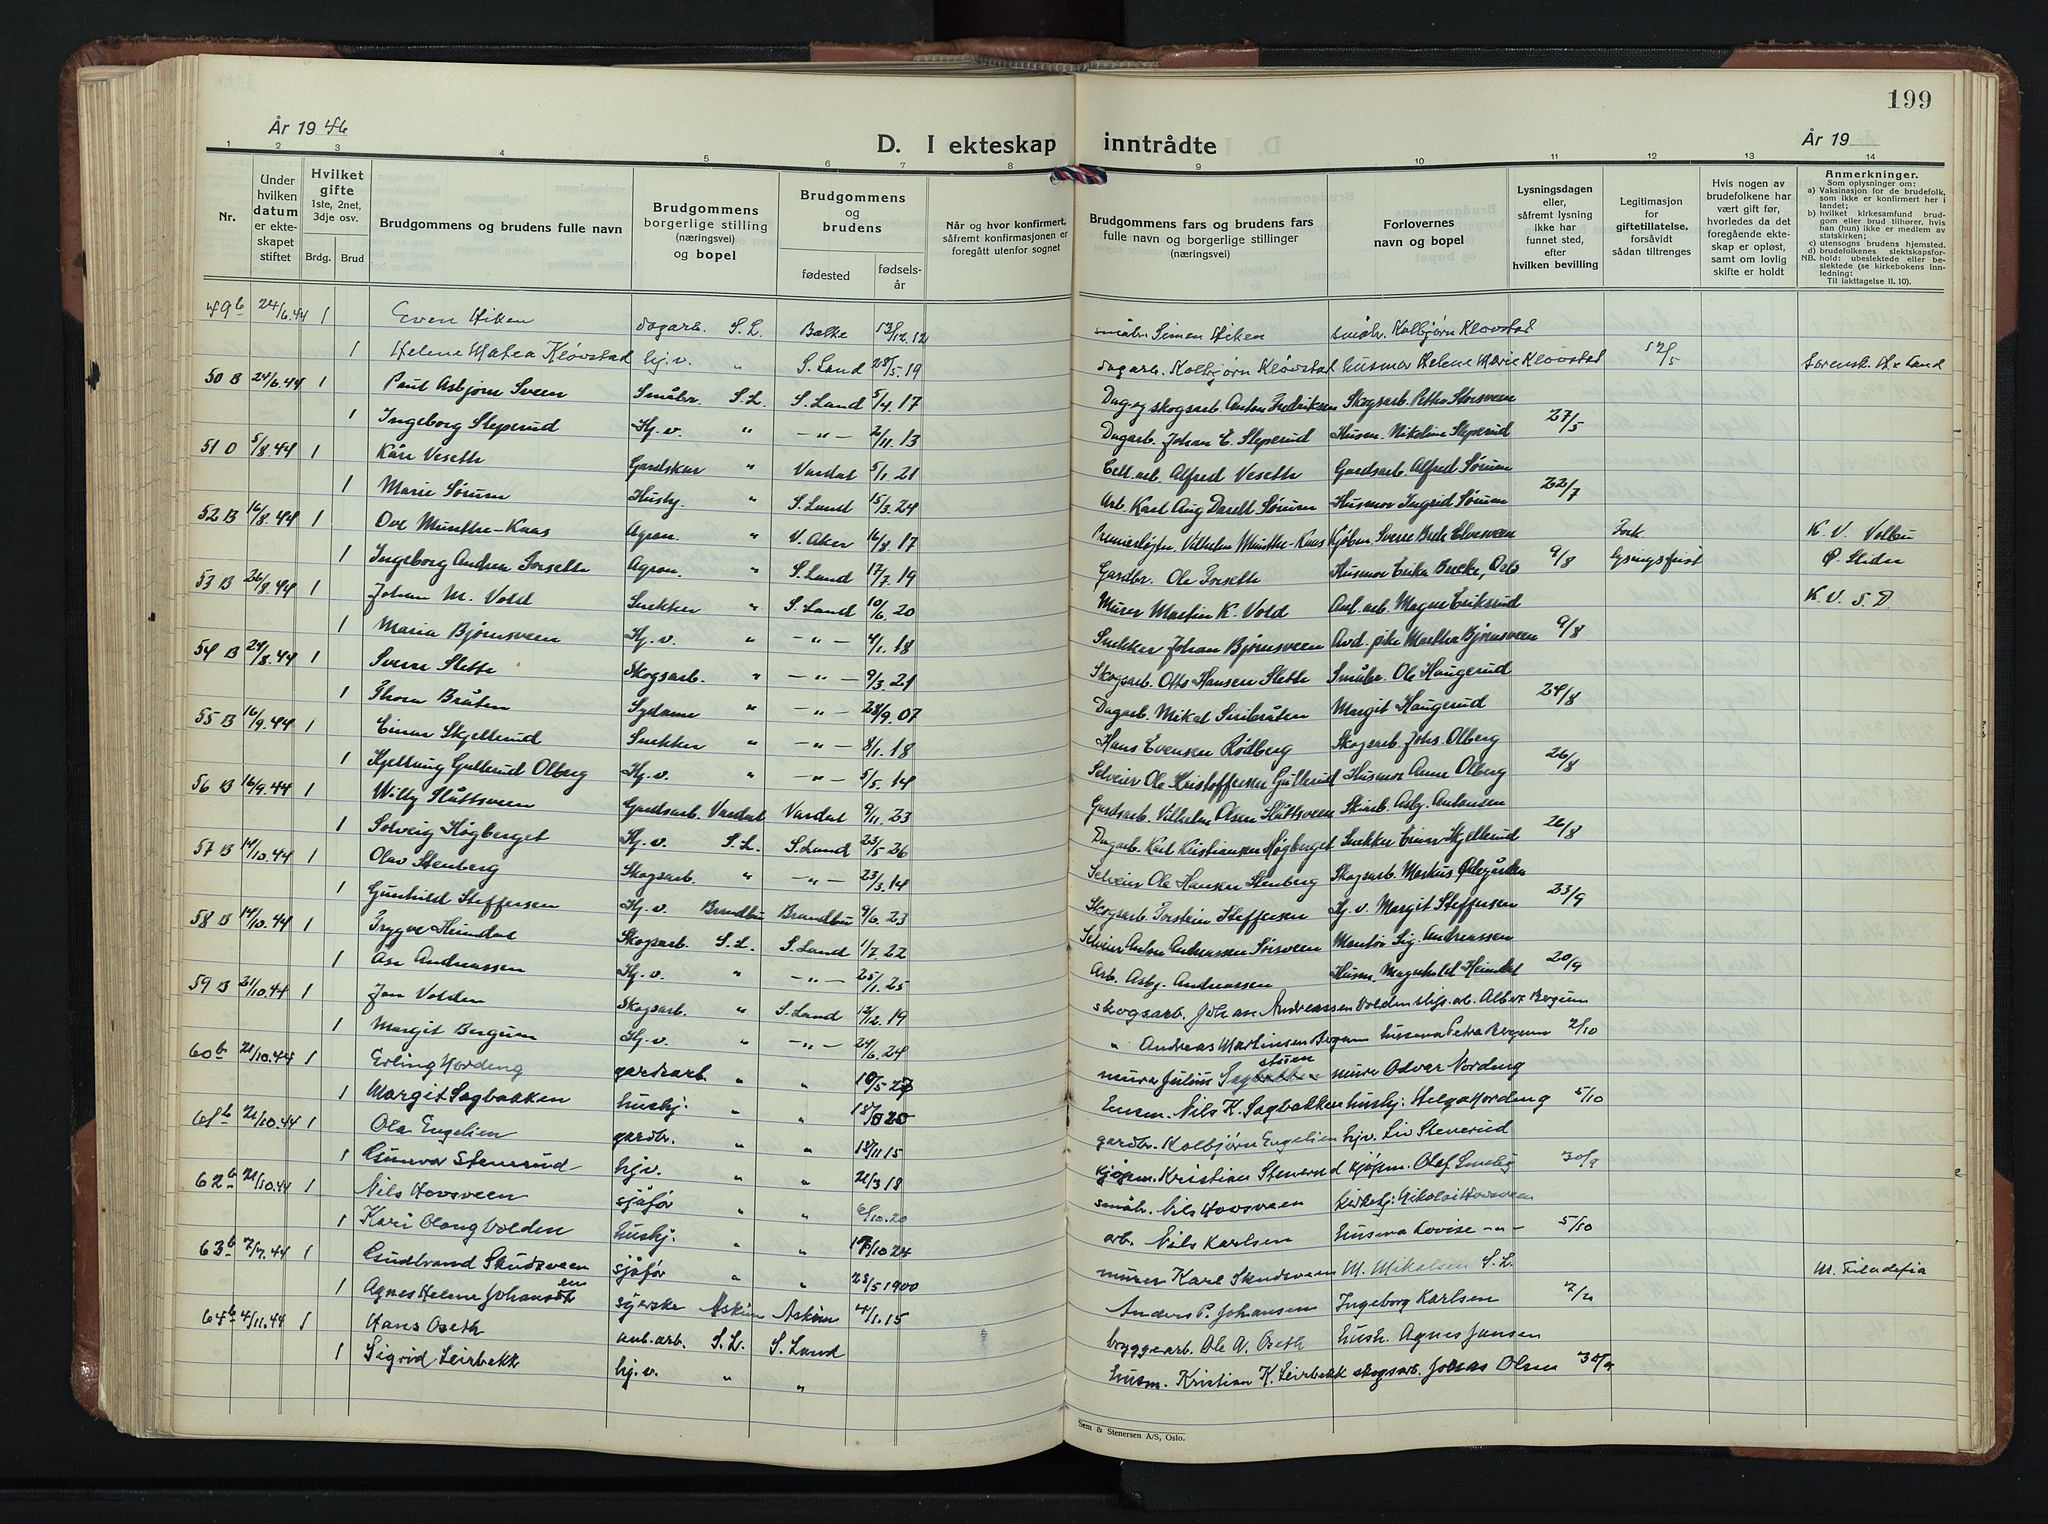 199
År 1946
D. I ekteskap inntrådte
År 19
1 2 3 4 5 6 7 8 9 10 11 12 13 14
Nr.
Under hvilken datum er ekteskapet stiftet
Hvilket gifte 1ste, 2net, 3dje osv.
Brdg. Brud
Brudgommens og brudens fulle navn
Brudgommens borgerlige stilling (næringsvei) og bopel
Brudgommens og brudens
fødested
fødselsår
Når og hvor konfirmert, såfremt konfirmasjonen er foregått utenfor sognet
Brudgommens fars og brudens fars fulle navn og borgerlige stillinger (næringsvei)
Forlovernes navn og bopel
Lysningsdagen eller, såfremt lysning ikke har funnet sted, efter hvilken bevilling
Legitimasjon for giftetillatelse, forsåvidt sådan tiltrenges
Hvis nogen av brudefolkene har vært gift før, hvorledes da det foregående ekteskap er opløst, samt om lovlig skifte er holdt
Anmerkninger.
Som oplysninger om:
a) Vaksinasjon for de brudefolk, som ikke er konfirmert her i landet;
b) hvilket kirkesamfund brudgom eller brud tilhører, hvis han (hun) ikke er medlem av statskirken;
c) utensogns brudens hjemsted.
d) brudefolkenes slektskapsforhold: ubeslektede eller beslektede (se kirkebokens innledning:
NB. Til iakttagelse II. 10).
49b 24/6.44 1 Even Hiken dagarb. S.L. Balke 13/12.12 småbr. Simen Hiken småbr. Kolbjørn Kløvstad
1 Helene Matea Kløvstad hj.v. " S. Land 28/5.19 dagarb. Kolbjørn Kløvstad husmor Helene Marie Kløvstad 12/5 Sorensk. H. & Land
50 B 24/6.44 1 Paul Asbjørn Sveen Småbr. S.L. S. Land 5/4.17 Dag og skogsarb. Anton Fredriksen Skogsarb. Petter Storsveen
1 Ingeborg Steperud Hj.v. " - " - 2/11.13 Dagarb. Johan E. Steperud Husm. Nikoline Steperud 27/5
51 B 5/8.44 1 Kåre Veseth Gardskar " Vardal 5/1.21 Cell.arb. Alfred Veseth Gardsarb. Alfred Sørum
1 Marie Sørum Hushj. " S. Land 15/3.24 Arb. Karl Aug Sørum Husmor Ingrid Sørum 22/7
52 B 16/8.44 1 Ove Munthe-Kaas Agron. " V. Aker 16/8.17 Premierløjtn. Vilhelm Munthe-Kaas Kjøbm. Sverre Elvesveen K. V. Volbu
1 Ingeborg Andrea Forseth Agron. " S. Land 17/7.19 Gardbr. Ole Forseth Husmor Erika Brekke, Oslo 9/8 lysingsfrist Ø. Slidre
53 B 26/8.44 1 Johan M. Vold Snekker " S. Land 10/6.20 Murer Martin K. Vold Anl. arb. Magne Eriksrud K. V. S. D
1 Maria Bjørnsveen Hj.v. " - " - 4/1.18 Snekker Johan Bjørnsveen Avd. pike Martha Bjørnsveen 9/8
54 B 24/8.44 1 Sverre Slette Skogsarb. " - " - 9/3.21 Skogsarb. Otto Hansen Slette Småbr. Ole Haugerud
1 Thora Bråten Sydame " - " - 28/9.07 Dagarb. Mikal Siribråten Margit Haugerud 24/8
55 B 16/9.44 1 Einar Skjellerud Snekker " - " - 8/1.18 Hans Evensen Rødberg Skogsarb. Johs. Olberg
1 Kjellaug Gullerud Olberg Hj.v. " - " - 5/5.14 Selveier Ole Kristoffersen Gullerud Husmor Anne Olberg 26/8
56 B 16/9.44 1 Willy Slåttsveen Gardsarb. Vardal Vardal 9/11.23 Gardsarb. Vilhelm Olsen Slåttsveen Skiarb. Asbj. Antonsen
1 Solveig Høgberget Hj.v. S.L. S. Land 23/5.26 Dagarb. Karl Kristiansen Høgberget Snekker Einar Skjellerud 26/8
57 B 14/10.44 1 Olav Stenberg Skogsarb. " - " - 23/3.14 Selveier Ole Hansen Stenberg Skogsarb. Markus Ødegården
1 Gunhild Steffensen Hj.v. Brandbu Brandbu 9/6.23 Skogsarb. Torstein Steffensen Hj. v. Margit Steffensen 23/9
58 B 14/10.44 1 Trygve Heimdal Skogsarb. S.L. S. Land 1/7.22 Selveier Anton Andreassen Sørsveen Montør Sig. Andreassen
1 Åse Andreassen Hj.v. " - " - 25/1.25 Arb. Asbj. Andreassen Husm. Magnhild Heimdal 20/9
59 B 21/10.44 1 Jon Volden Skogsarb. " S. Land 12/12.19 skogsarb. Johan Andreassen Volden slip. arb. Albert Bergum
1 Margit Bergum Hj.v. " - " - 24/6.24 " Andreas Martinsen Bergum husmor Petra Bergum 2/10
60 b 21/10.44 1 Erling Nordeng gardsarb " " 10/5-27 murer Julius Sagstuen murer Odvar Nordeng
1 Margit Sagbakken hushj. " " Husm. Nils K. Sagbakken hushj. Helga Nordeng 5/10
61 b 21/10.44 1 Ola Engelien gardbr. " " 18/11 15 gardbr. Kolbjørn Engelien hjv. Liv Stenerud
1 Gunvor Stenerud hj.v. " " 21/3 18 kjøpm. Kristian Stenerud kjøpm. Olaf Smeby 30/9
62 b 21/10.44 1 Nils Hovsveen sjåfør " " 6/10.20 småbr. Nils Hovsveen kirketj. Nikolai Hovsveen
1 Kari Olaug Volden hushj. " " 10/10 24 arb. Nils Karlsen husmor Lovise - " - 5/10
63 b 2/7.44 1 Gudbrand Skudsveen sjåfør " " 23/5 1900 murer Karl Skudsveen M. Mikalsen S.L. M. Filadefia
1 Agnes Helene Johansen syerske Askim Askim 4/1.15 Anders P. Johansen Ingeborg Karlsen
64 b 4/11.44 1 Hans Oseth anl.arb. S.L. S. Land byggearb. Ole A. Oseth hush. Agnes Jansen
1 Sigrid Leirbekk hj.v. " " husm. Kristian K. Leirbekk skogsarb. Jonas Olsen
Sem & Stenersen A/S, Oslo.